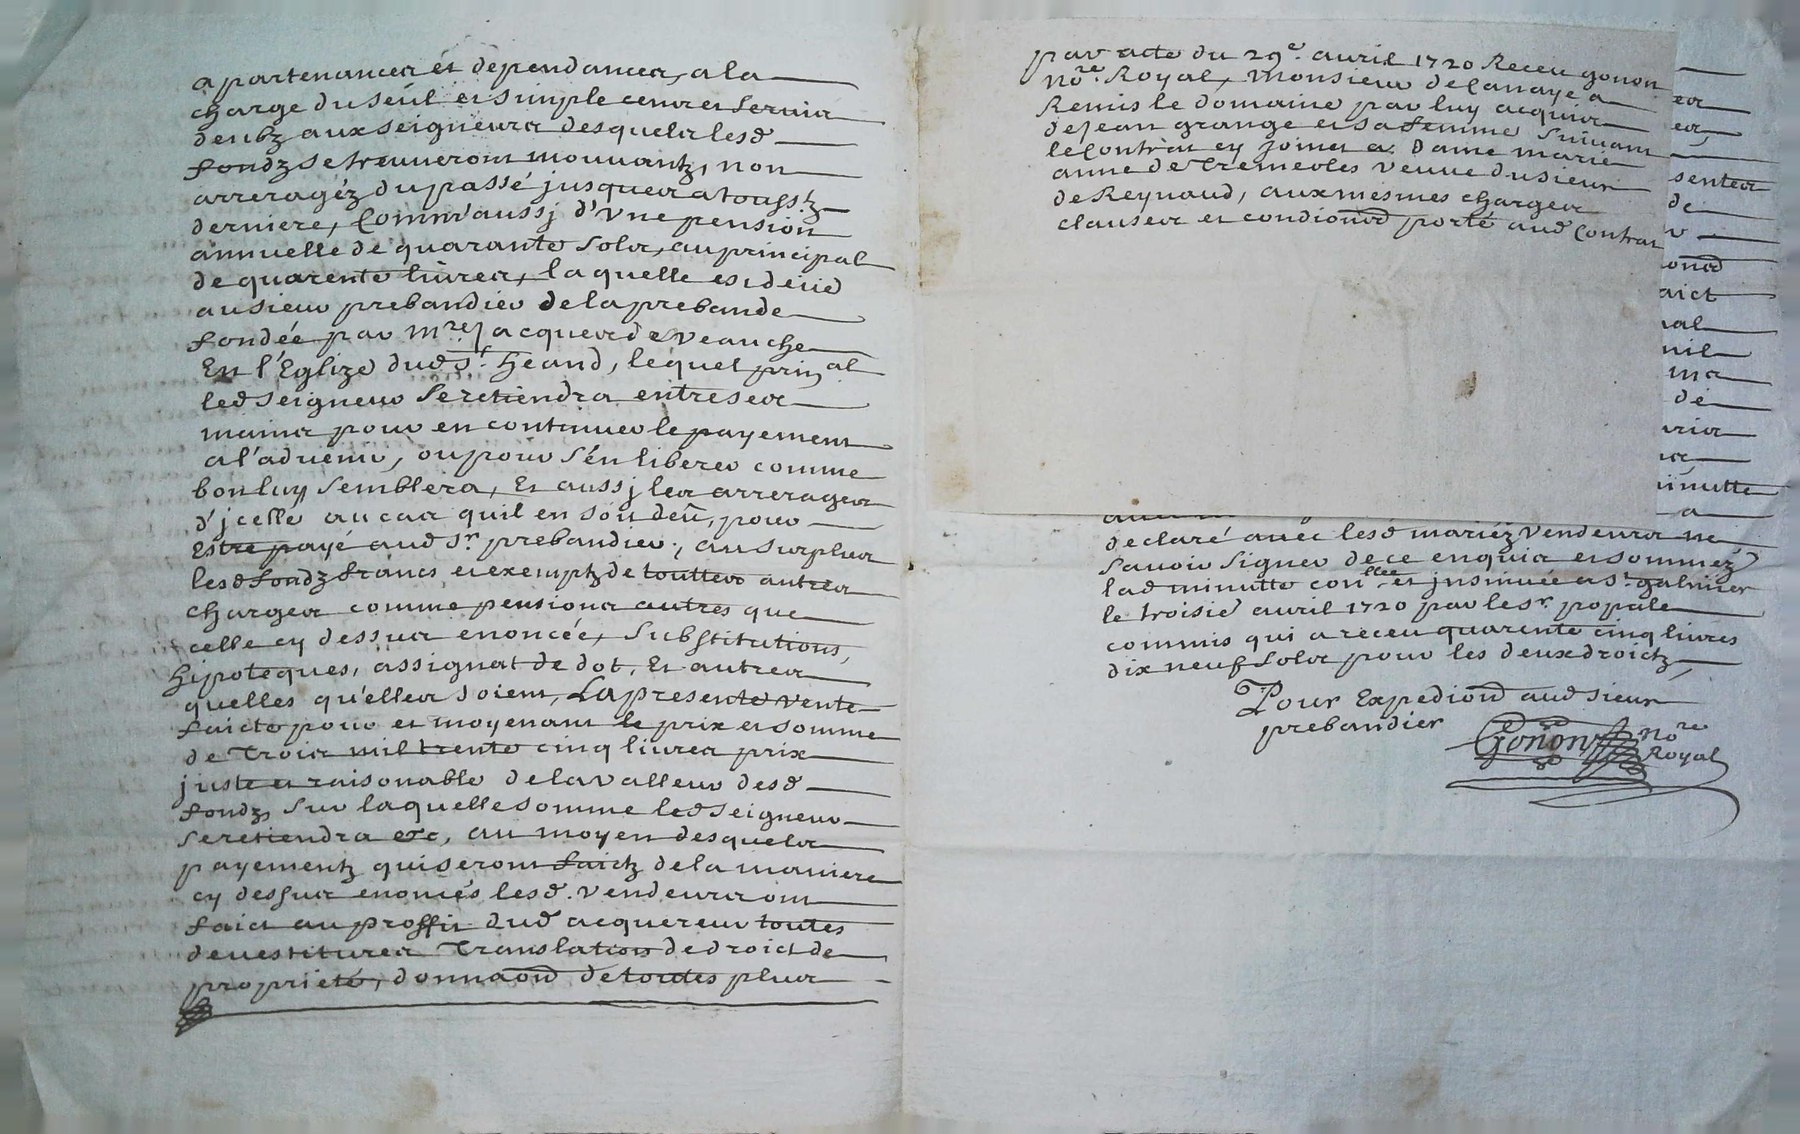 apartenances et dependances, a la
charge du seul et simple cens et servis
deubz aux seigneurs desquels lesd
fondz se treuveront mouvantz, non
arreragéz du passé jusques a toussts
derniere, Comm'aussj d'vne pension
annuelle de quarante sols, au principal
de quarente livres, laquelle est deüe
au sieur prebandier de la prebande
fondée par mre Jacques de Veauche
En l'Eglize dud St. heand, lequel prinal
led seigneur se retiendra entre ses
mains pour en continuer le payement
a l'advenir, ou pour s'en liberer comme
bon luy semblera, Et aussj les arrerages
d'jcelle au cas quil en soit deü, pour
Estre payé aud Sr. prebandier, au surplus
lesd fondz francs et exemptz de touttes autres
charges comme pensions autres que
celle cy dessus enoncée, Substitutions,
hipoteques, assignat de dot, Et autres
quelles qu'elles soient, La presente vente
faicte pour et moyenant le prix et somme
de Trois mil trente cinq livres prix
juste et raisonable de la valleur desd
fondz, sur laquelle somme led seigneur
se retiendra etc, au moyen desquels
payementz qui seront faictz de la maniere
cy dessus enoncés lesd. vendeurs ont
faict au proffit dud acquereur toutes
devestitures Translation de droict de
proprieté, donnaon de toutes plus
par acte du 29e. avril 1720 Receu gonon
Nore. Royal, Monsieur delanaye a
Remis le domaine par luy acquis
de Jean grange et sa femme suivant
le Contrat cy joint a Dame marie
anne de Tremeoles veuve du sieur
de Reynaud, aux mesmes charges
clauses et condionons porté aud Contrat
declaré avec lesd mariéz Vendeurs ne
savoir signer de ce enquis et somméz
lad minutte conllée et jnsinuée a St. galmier
le troisie avril 1720 par le sr. popale
commis qui a receu quarente cinq livres
dix neuf sols pour les deux droictz,
Pour Expedion aud sieur
prebandier
Gonon Nore
Royal